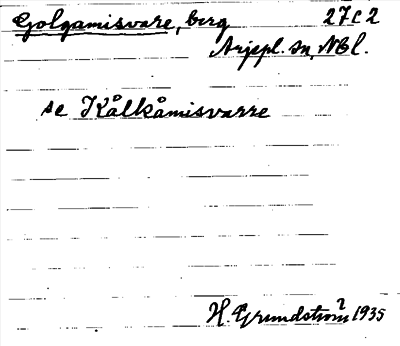 Golgamisvare, berg 27c2
Arjepl. sn, Nbl.
se Kålkåmisvarre
H. Grundström 1935